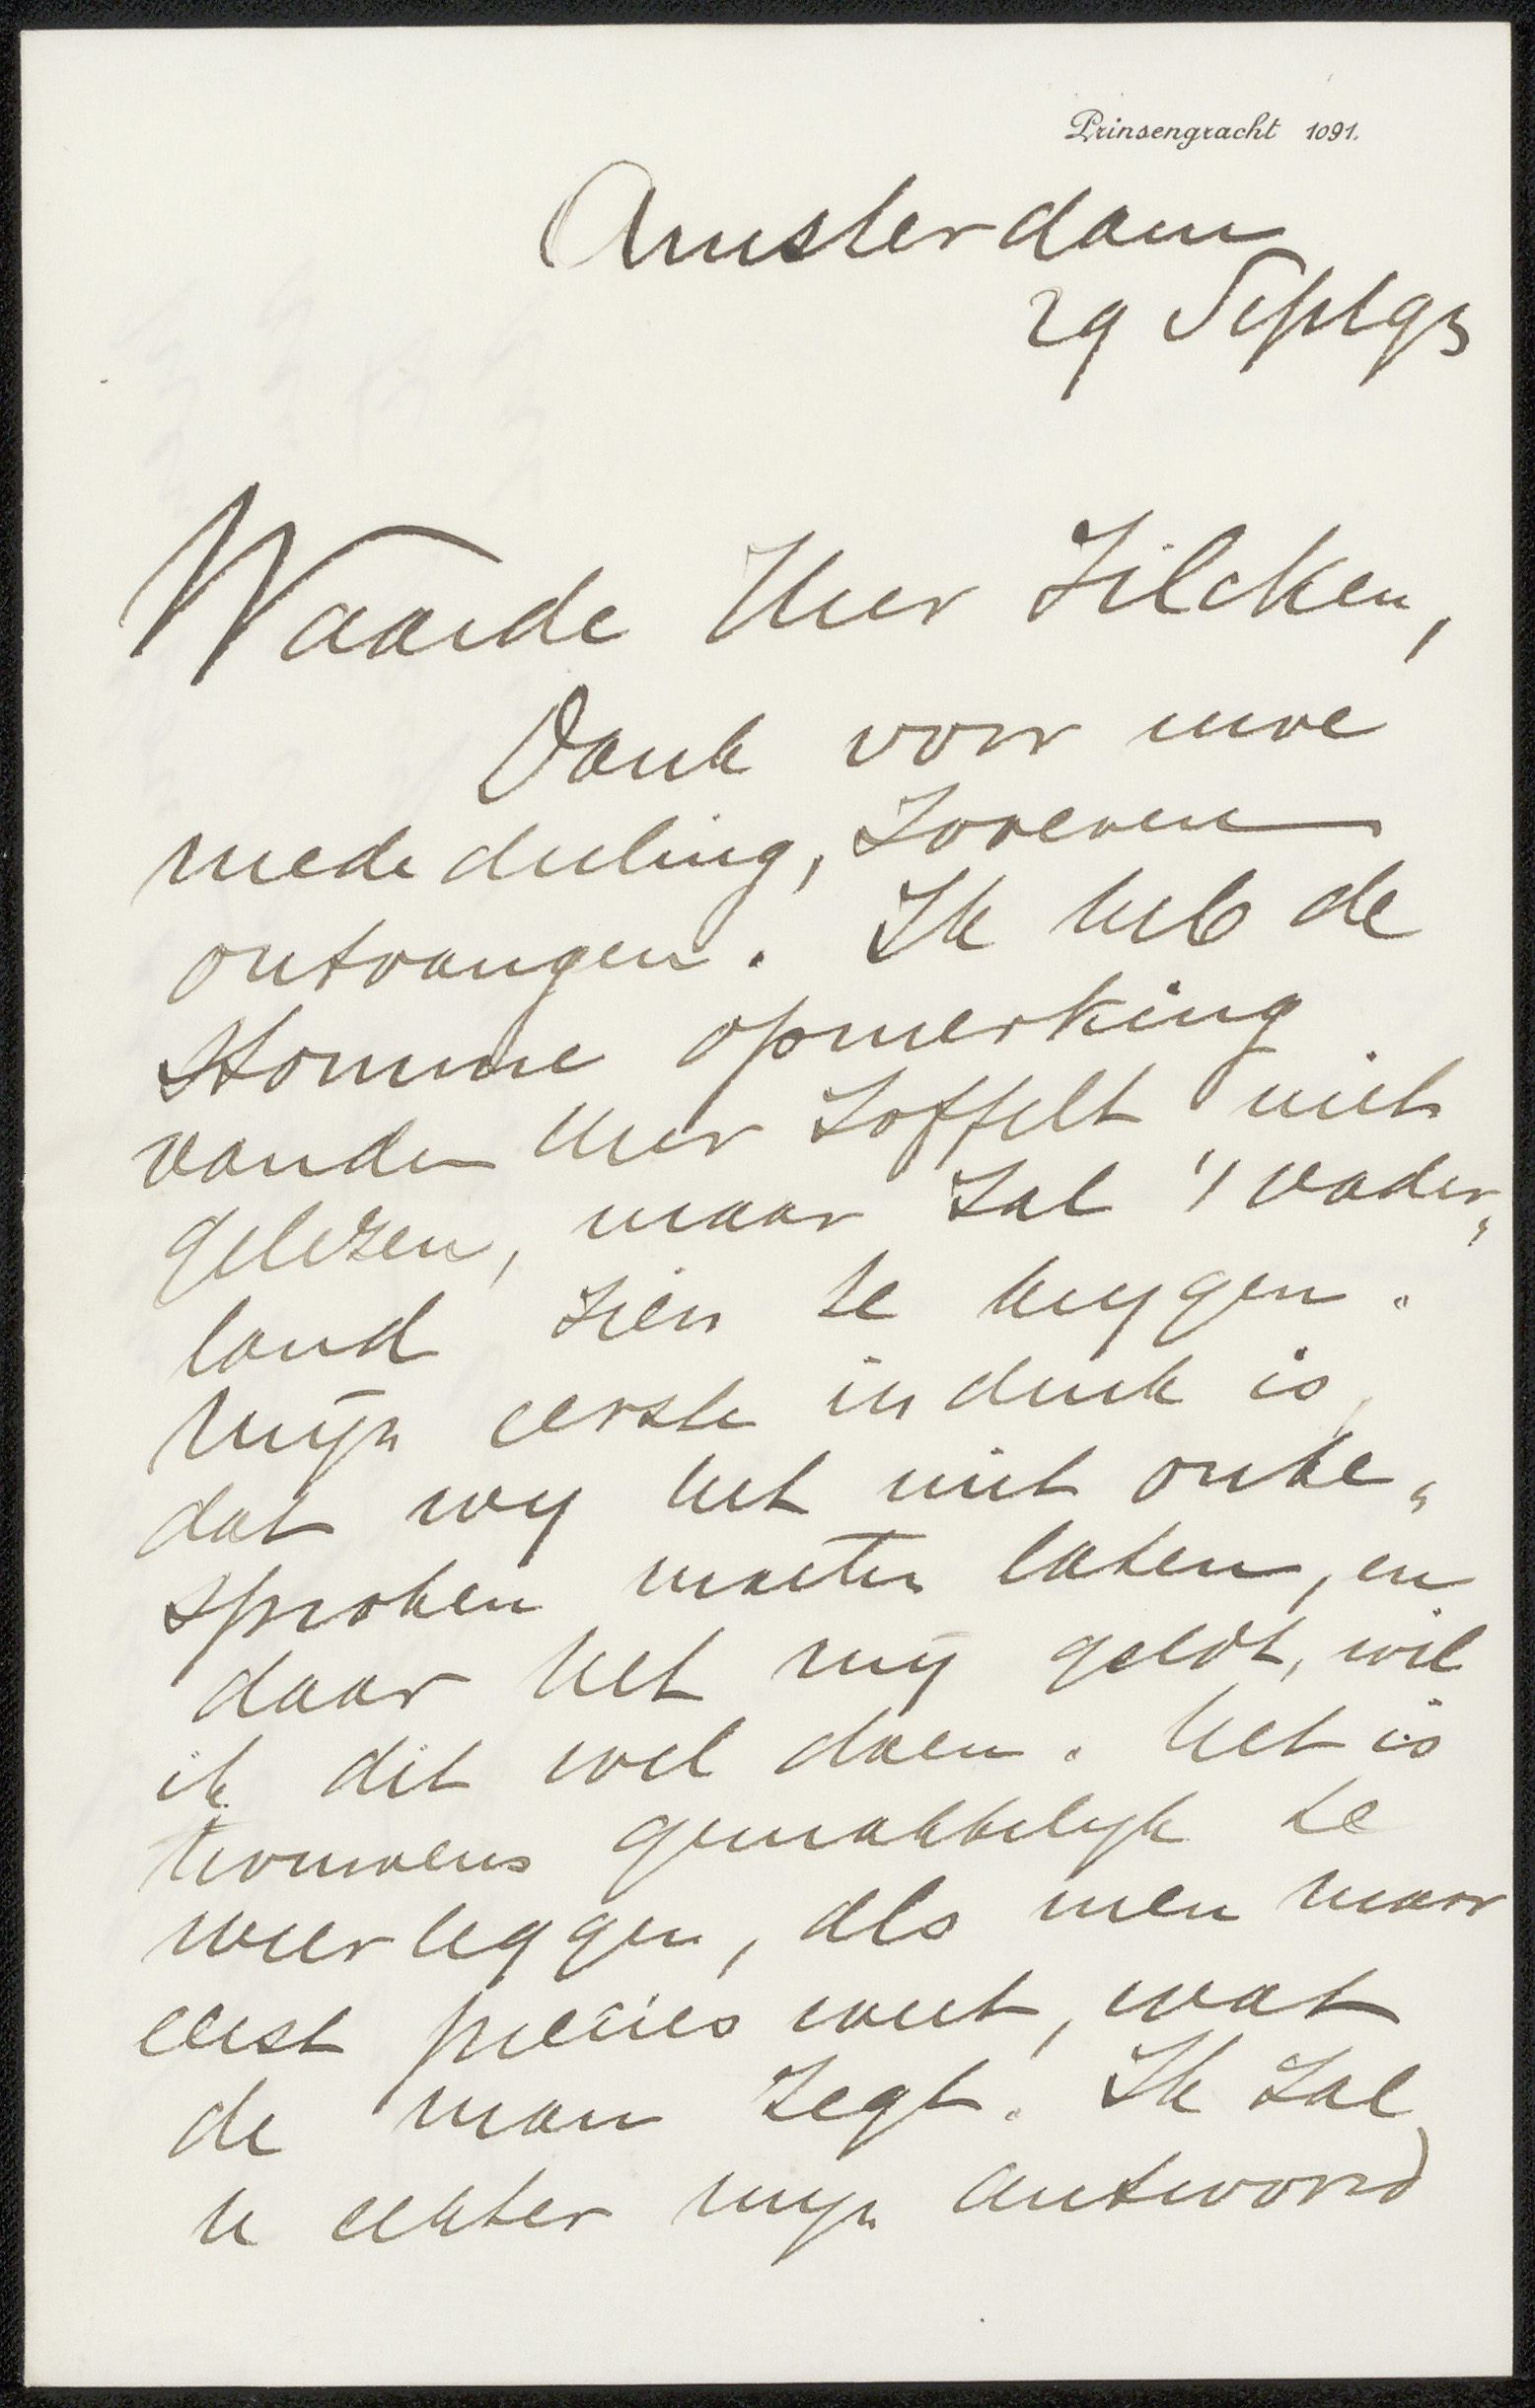 Prinsengracht 1091.
Amsterdam
29 Sept 93
Waarde Heer Zilcken,
Dank voor uwe
mededeeling, zooeven
ontvangen. Ik heb de
stomme opmerking
van den heer Loffelt niet
gelezen, maar zal 't vader„
land zien te krygen.
Mijn eerste indruk is,
dat wy het niet onbe„
sproken moeten laten, en
daar het mij geldt, wil
ik dit wel doen. Het is
trouwens gemakkelyk te
weerleggen, als men maar
eerst precies weet, wat
de man zegt. Ik zal
u echter myn antwoord